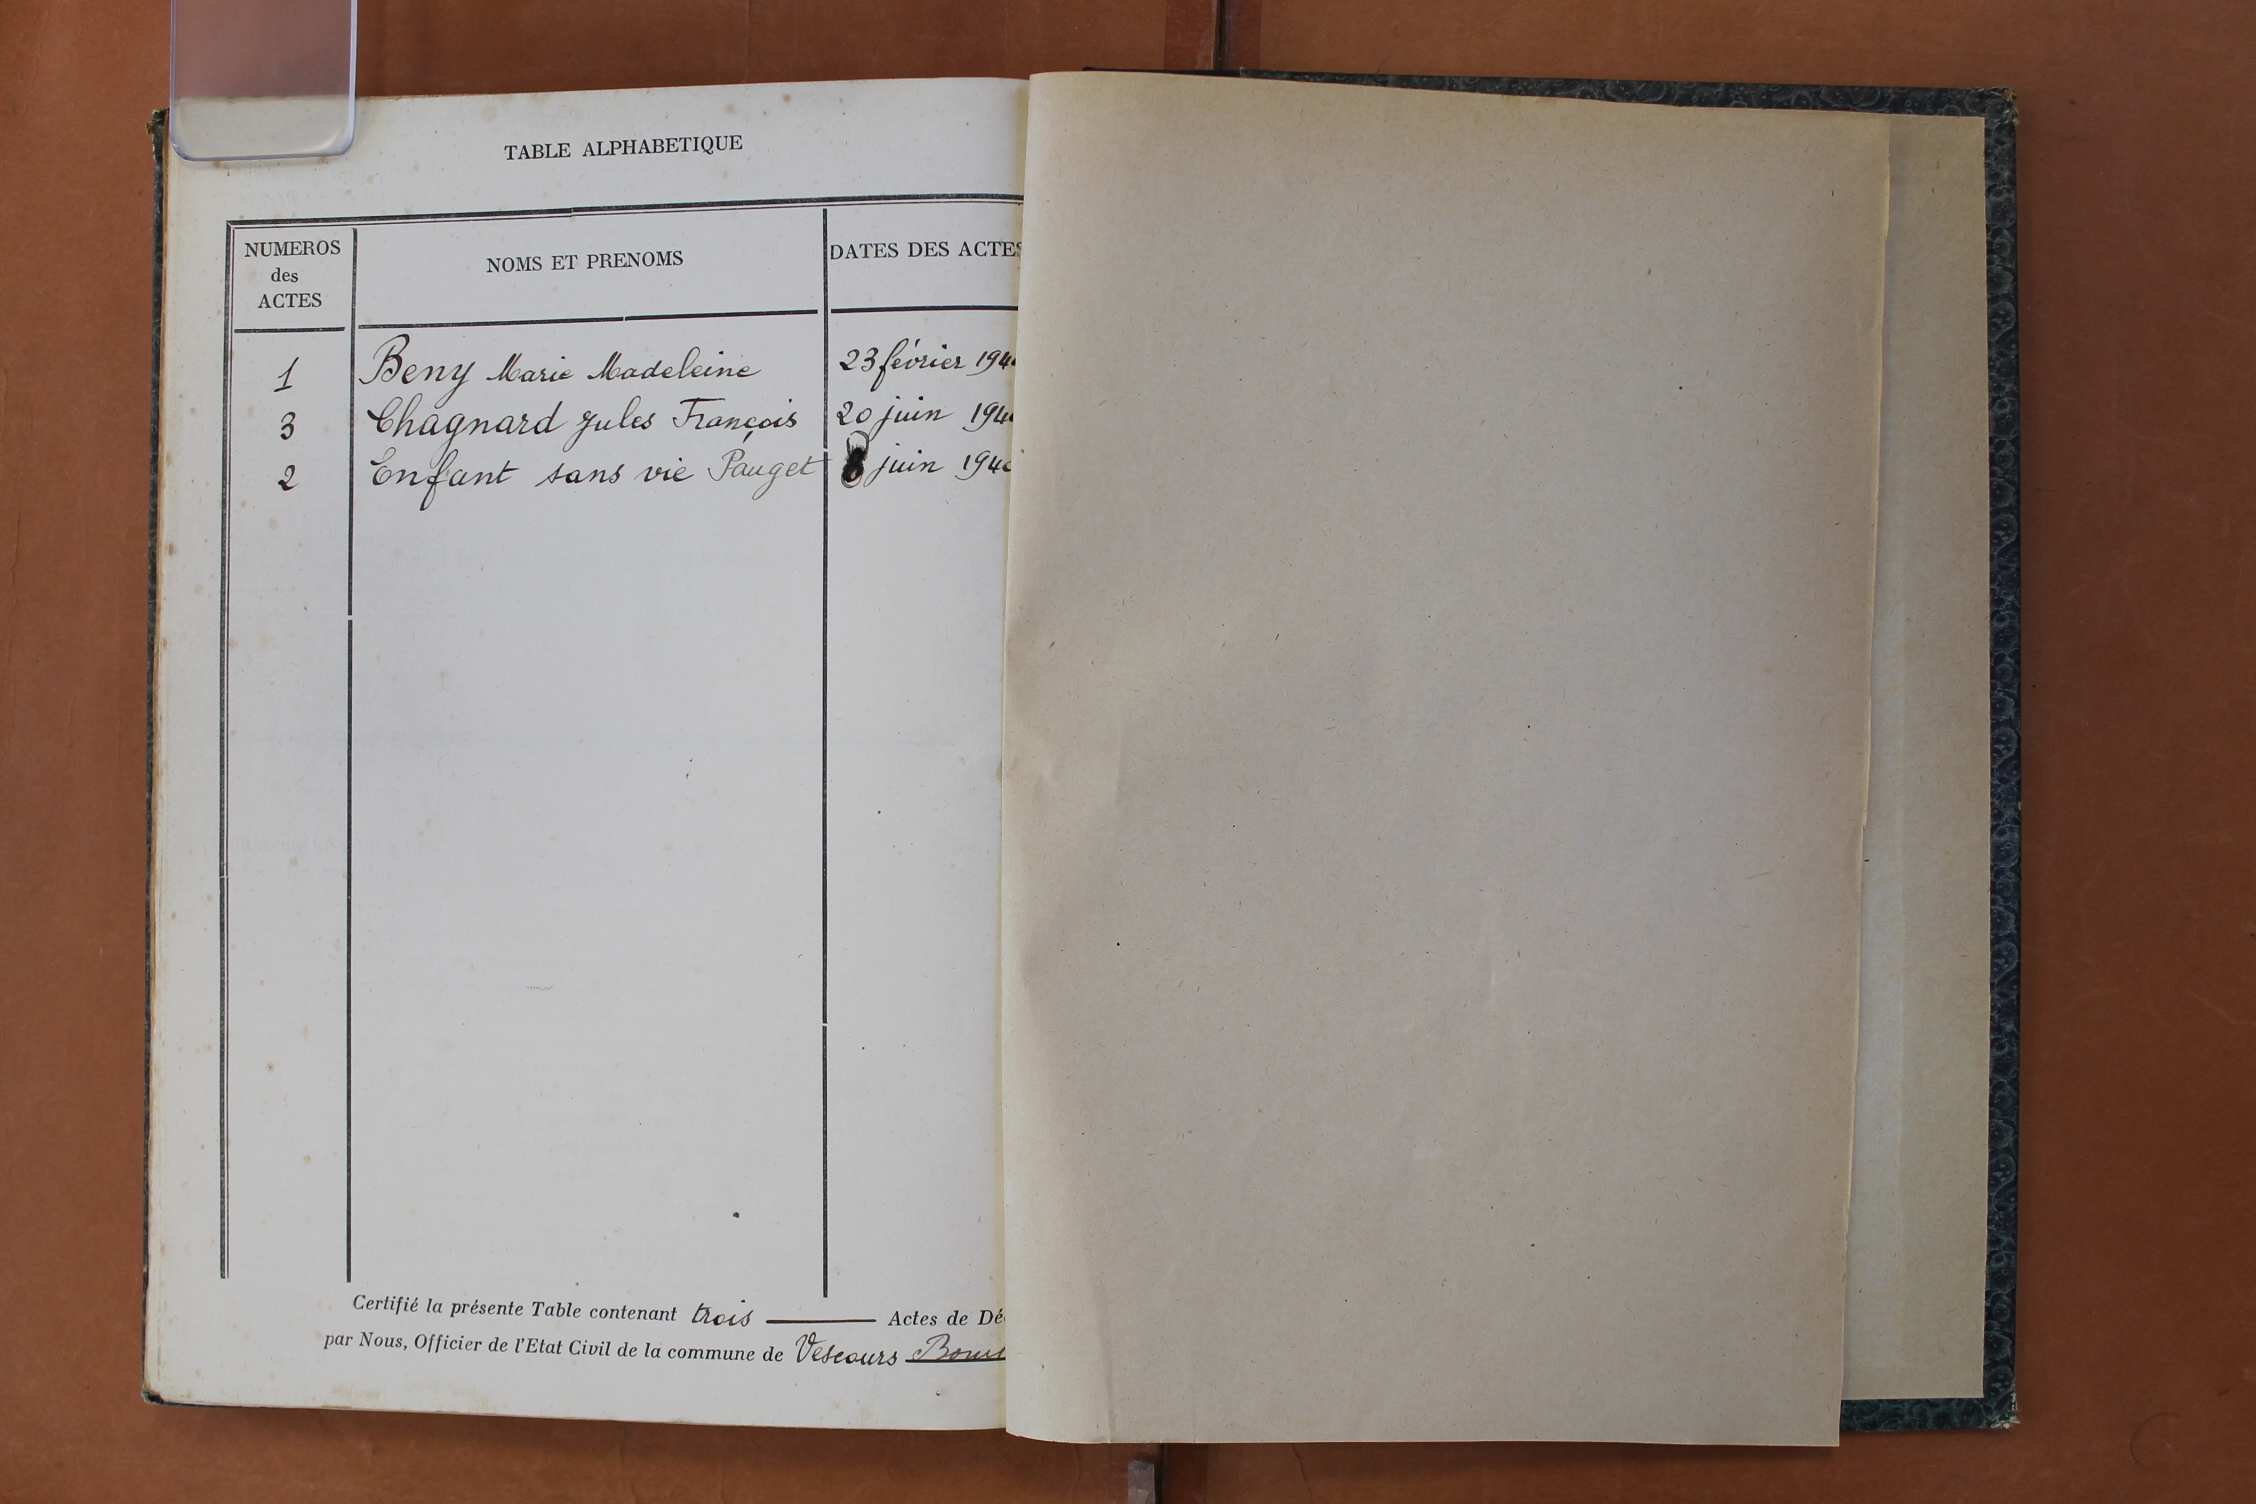 TABLE ALPHABETIQUE
NUMEROS
des
ACTES
NOMS ET PRENOMS
DATES DES ACTES
1 Beny Marie Madeleine 23 février 194
3 Chagnard Jules François 20 juin 194
2 Enfant sans vie Pauget 8 juin 194
Certifié la présente Table contenant trois Actes de Dé
par Nous, Officier de l'Etat Civil de la commune de Vescours